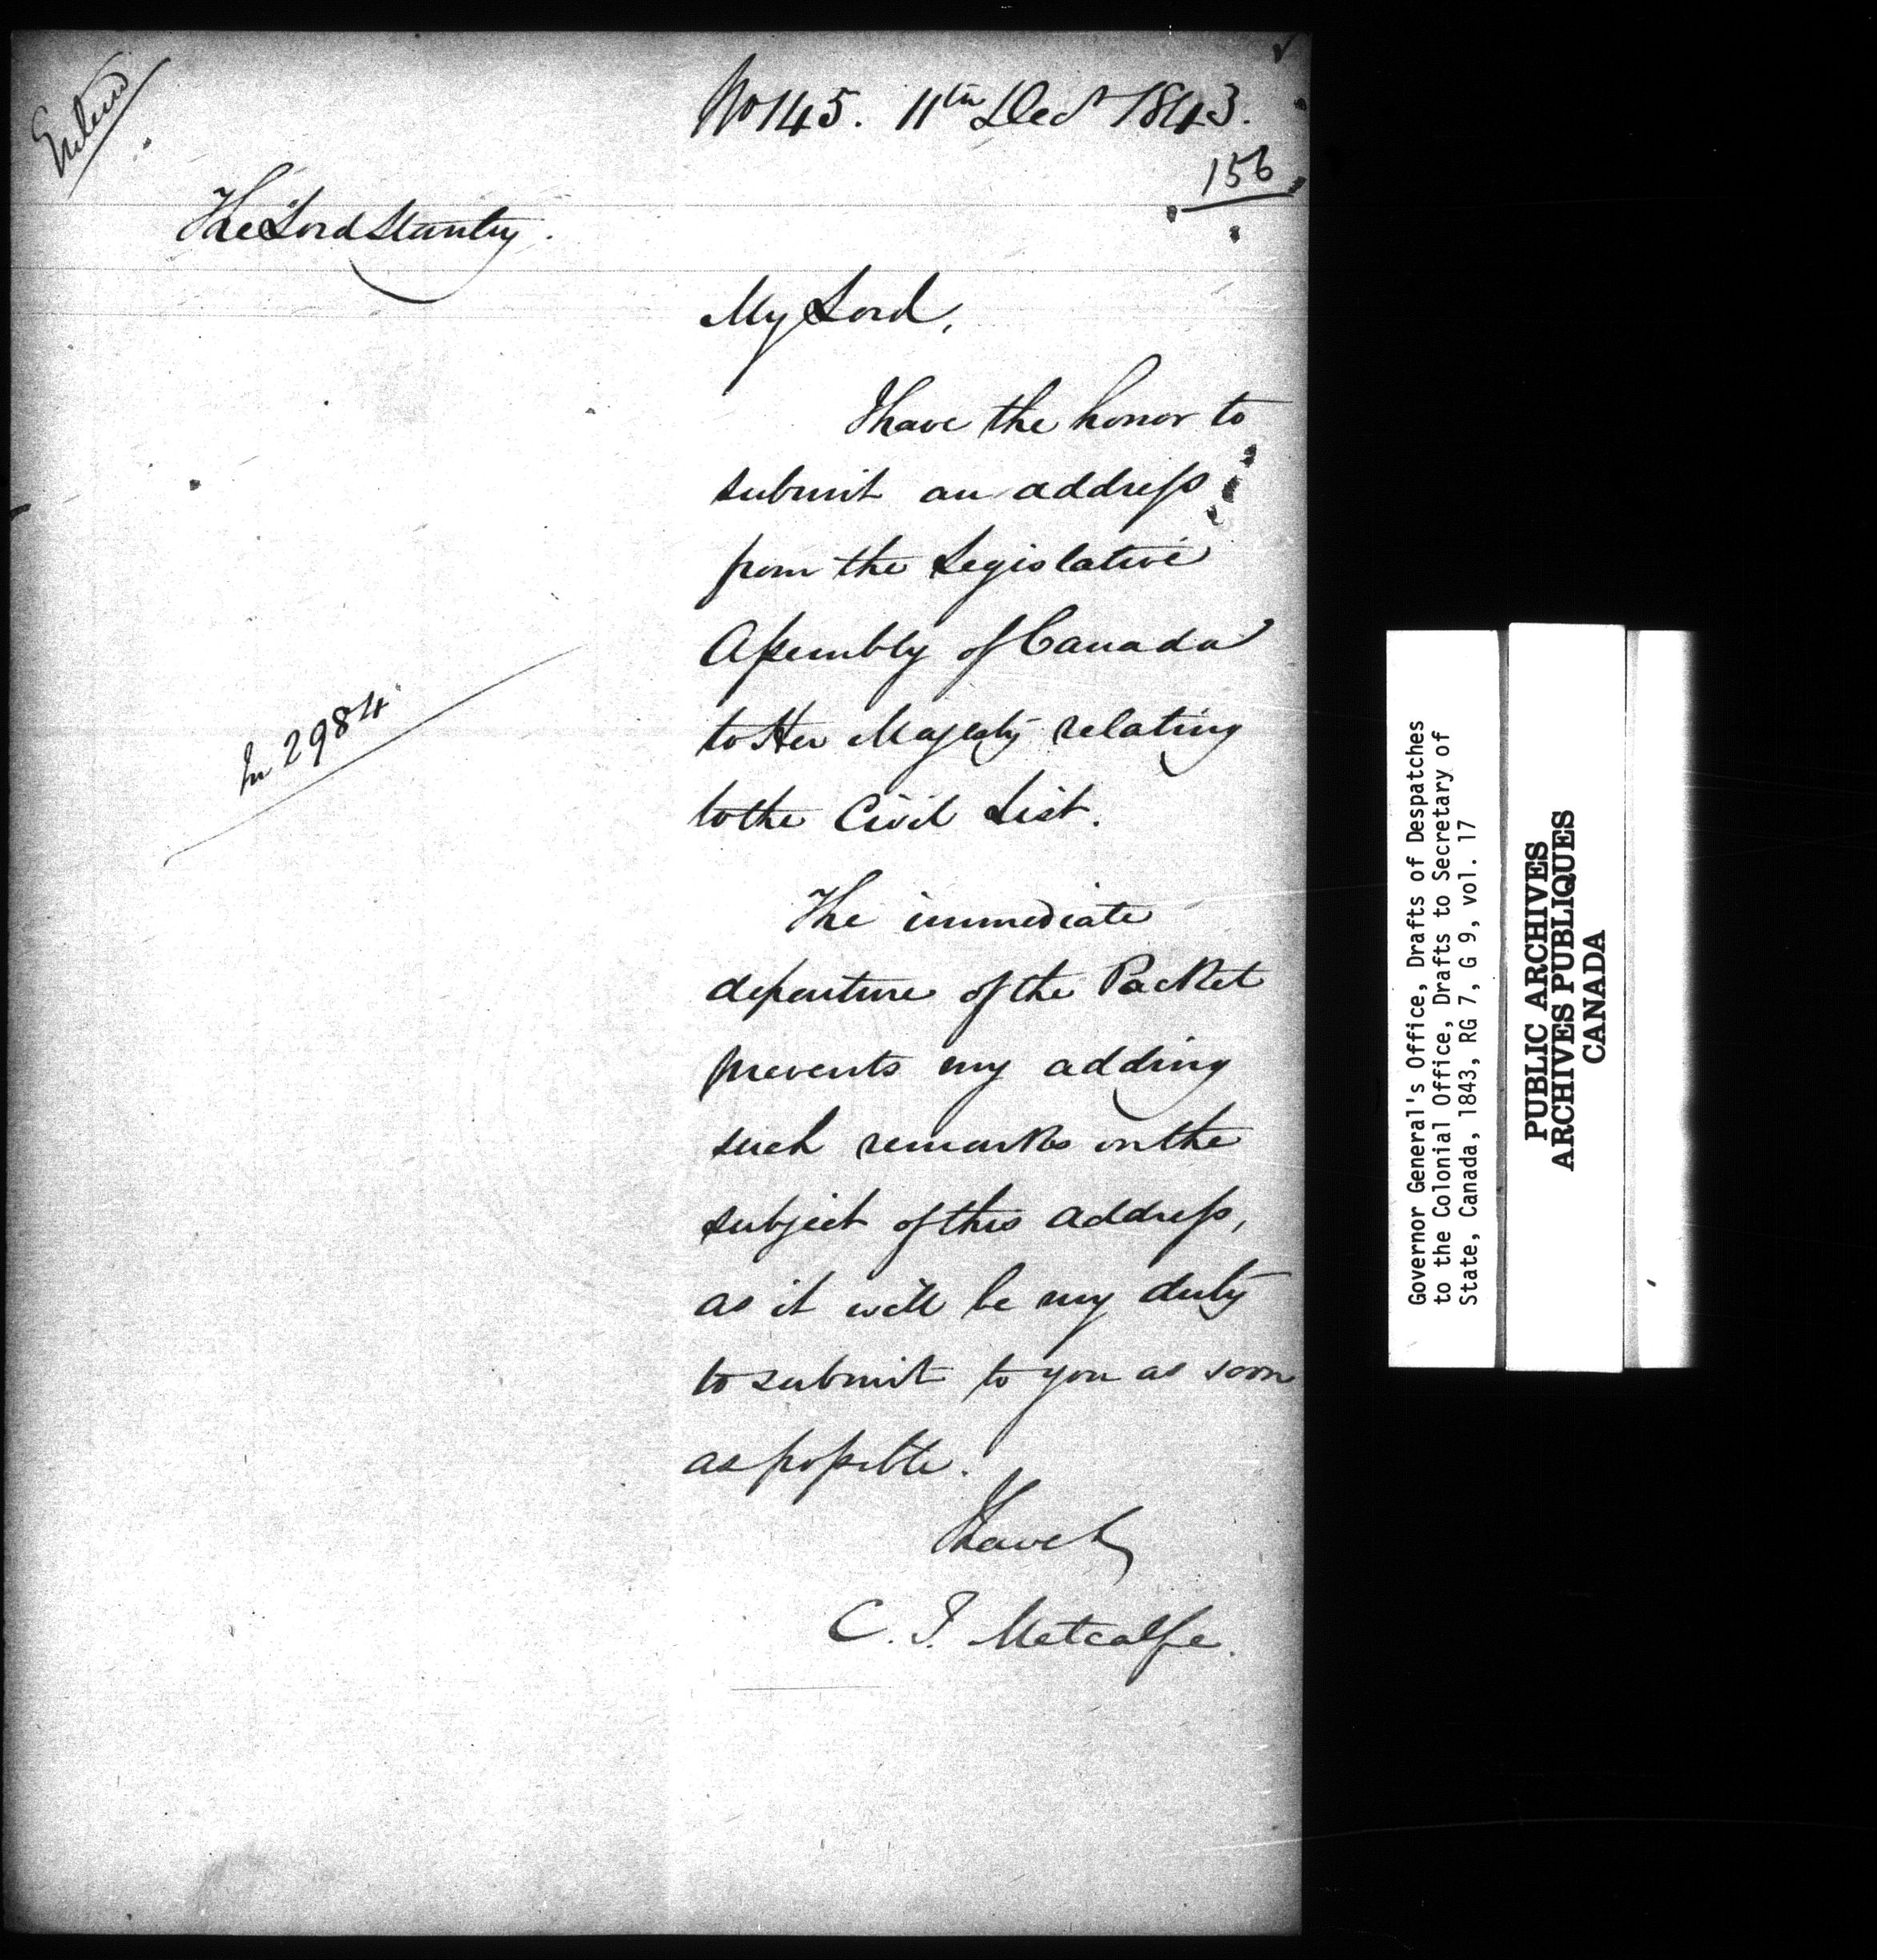 Entered
No 145. 11th Decr 1843.
156
The Lord Stanley.
My Lord,
I have the honor to
submit an address
from the Legislative
Assembly of Canada
to Her Majesty relating
to the Civil List.
In 2984
The immediate
departure of the Packet
prevents my adding
such remarks on the
subject of this address,
as it will be my duty
to submit to you as soon
as possible.
I have &c
C. T. Metcalfe.
Governor General's Office, Drafts of Despatches
to the Colonial Office, Drafts to Secretary of
State, Canada, 1843, RG 7, G 9, vol. 17
PUBLIC ARCHIVES
ARCHIVES PUBLIQUES
CANADA